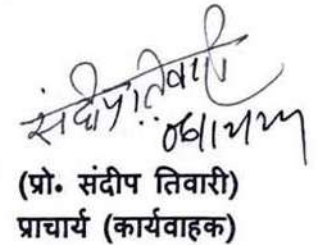 संदीप तिवारी
(प्रो॰ संदीप तिवारी)
प्राचार्य (कार्यवाहक)